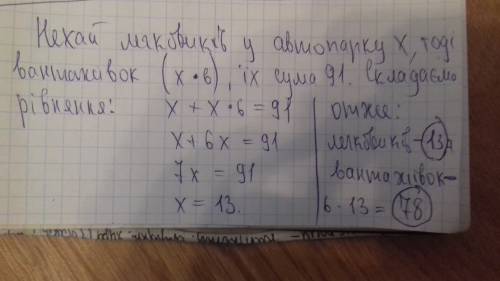 Нехай легковиків у автопарку x, тоді
вантажівок (x • 6), їх сума 91. Складаємо
рівняння:
x + x • 6 = 91
x + 6x = 91
7x = 91
x = 13.
отже:
легковиків – 13,
вантажівок –
6 • 13 = 78